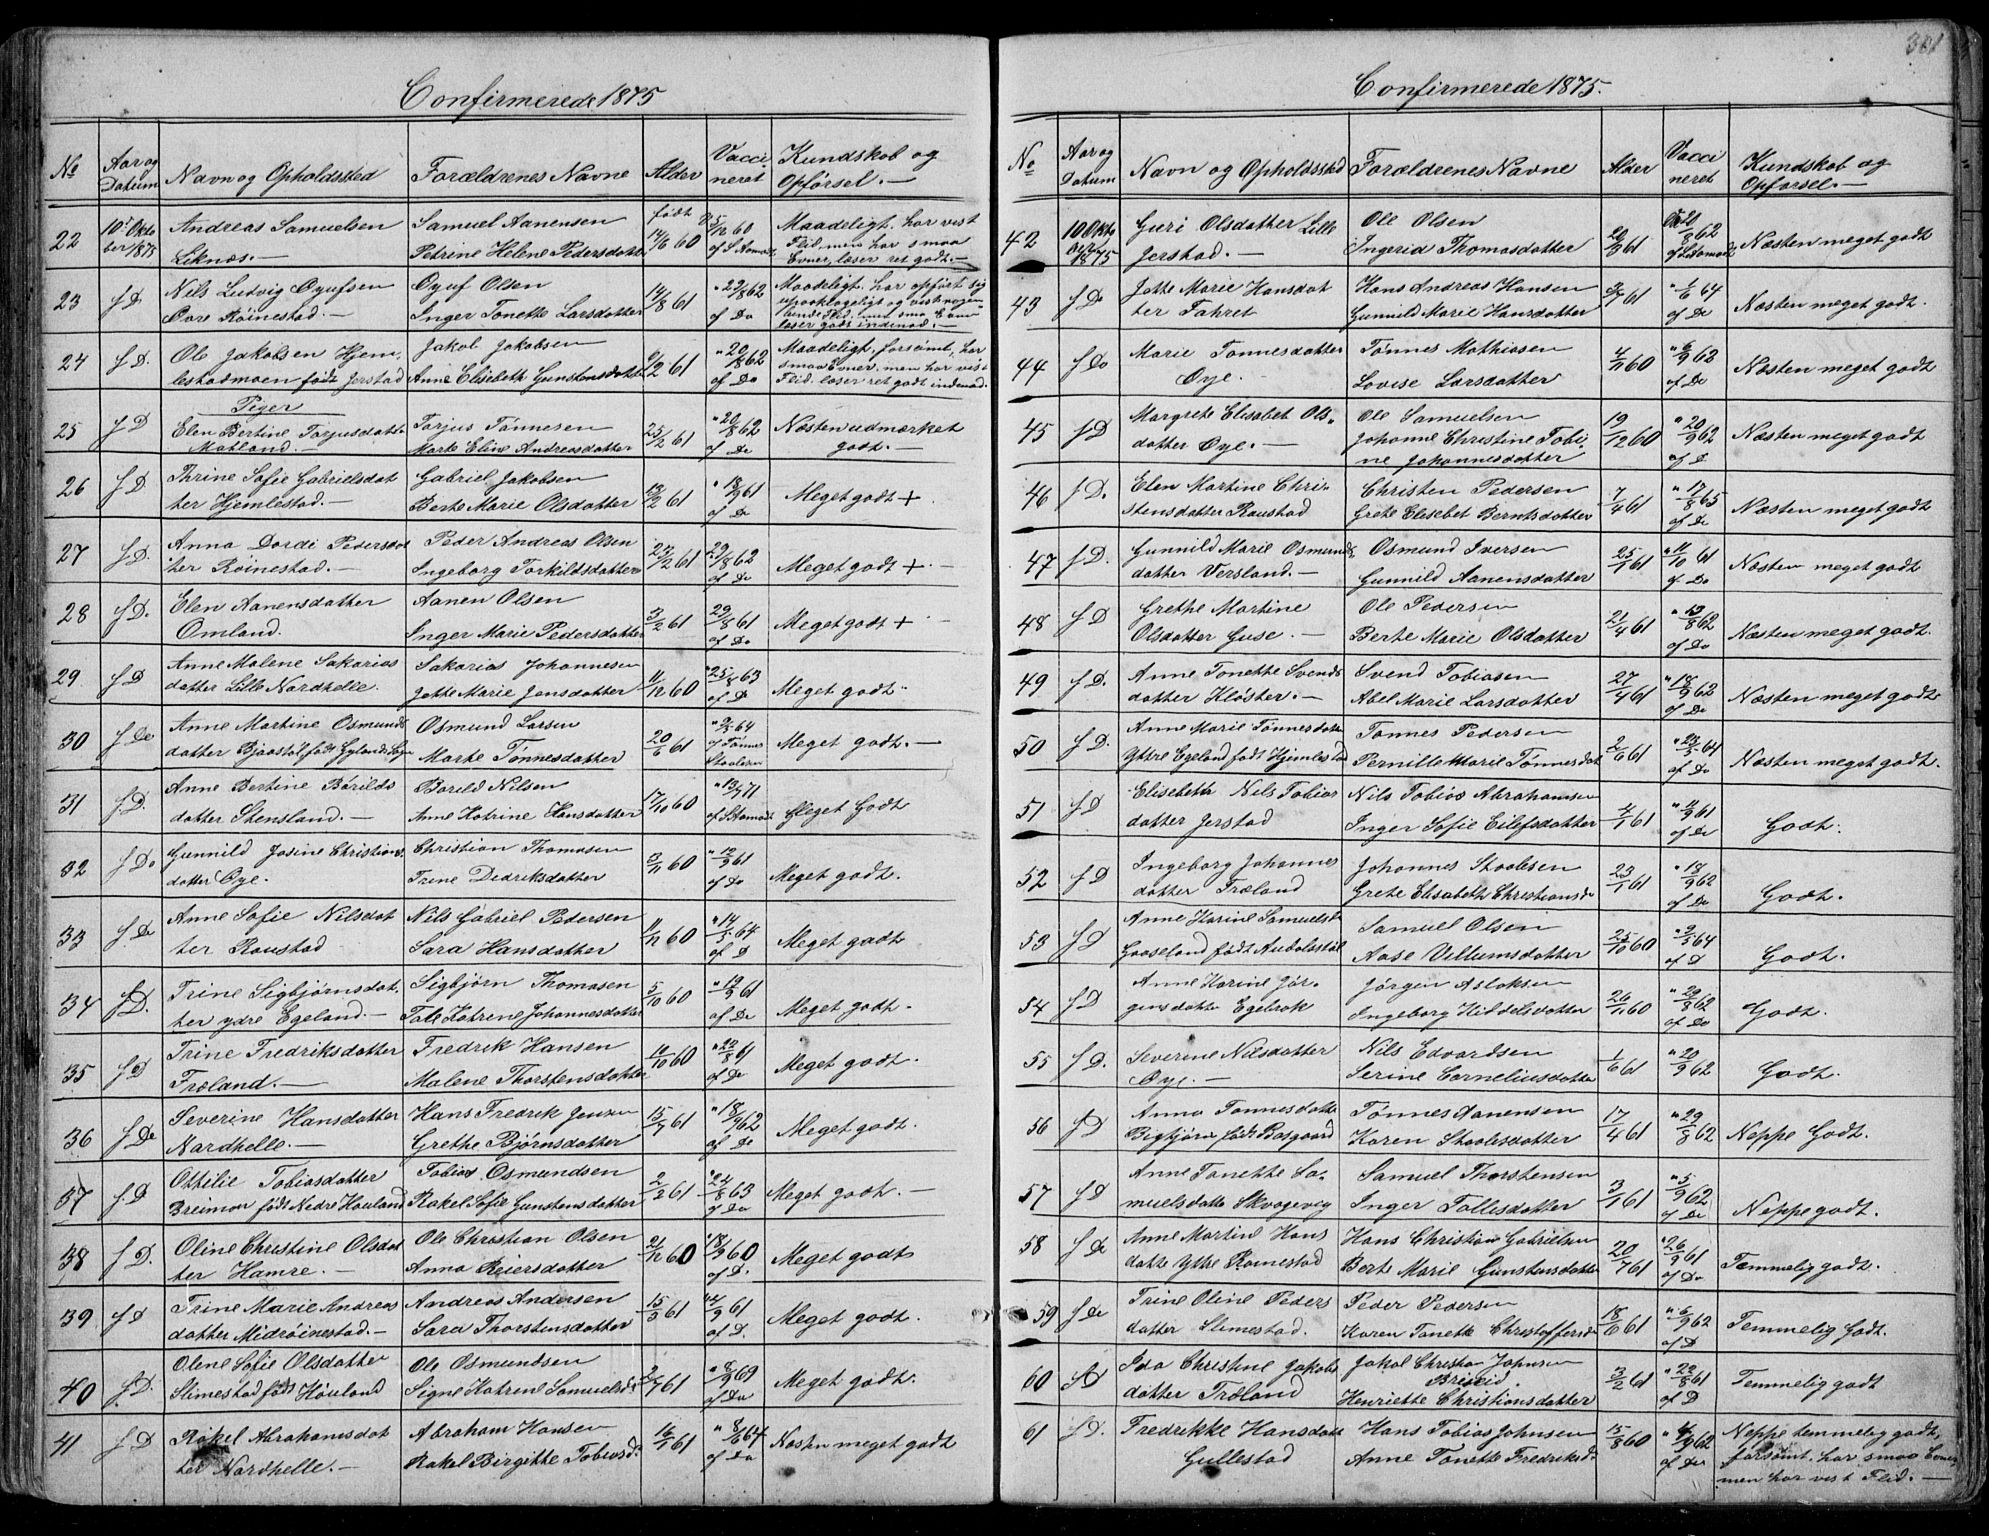 301
Confirmerede 1875
No Aar og Datum Navn og Opholdssted Forældrenes Navne Alder Vaccineret Kundskab og Opførsel.—
22 10d Okto Andreas Samuelsen Samuel Aanensen født 14/6 60 60 Maadeligt, har vist
ber 1875 Liknæs.— Petrine Helene Pedersdatter Flid, men har smaa
Evner, læser ret godt.—
23 f D. Nils Ludvig Oyufsen Oyuf Olsen 14/8 61 " 29/8 62 Maadeligt, har opført sig
Øvre Røinestad.— Inger Tonette Larsdatter af Do
læser godt indenad.—
24 f D. Ole Jakobsen Hjem, Jakob Jakobsen 9/2 61 " 20/8 62 Maadeligt, forsømt, har
lestadmoen født Jerstad Anne Elisebeth Gunstensdatter af Do smaa Evner, men har vist
Flid, læser ret godt indenad.
Piger
25 f D Elen Bertine Torjusdatter Torjus Tønnesen 25/2 61 " 20/8 62 Næsten udmærket
Matland.— Marte Eline Andreasdatter af Do godt.—
26 f D. Thrine Sofie Gabrielsdat Gabriel Jakobsen 61 " 18/9 61 Meget godt +
ter Hjemlestad.— Berte Marie Olsdatter af Do
27 f D. Anna Dordi Pedersdat Peder Andreas Olsen 23/2 61 29/8 62 Meget godt +
ter Røinestad.— Ingeborg Torkildsdatter af Do
28 f D. Elen Aanensdatter Aanen Olsen 3/2 61 29/8 61 Meget godt +
Omland. Inger Marie Pedersdatter af Do
29 f D Anne Malene Sakarias Sakarias Johannesen 11/12 60 " 25/8 63 Meget godt.
datter Lille Nordhelle. Jotte Marie Jensdatter af D
30 f Do Anne Martine Osmunds Osmund Larsen 20/6 61 64 Meget godt.—
datter født Gylands Sogn Marte Tønnesdatter af Tønnes
Staalesen
31 f D. Anne Bertine Børilds Borild Nilsen 17/10 60 " 13/9 71 Meget Godt
datter Stensland.— Anne Katrine Hansdatter
32 f Do Gunnild Josine Christians Christian Thomasen 3/11 60 " 12/9 61 Meget godt.
datter Øye. Trine Dedriksdatter af Do
33 f Do Anne Sofie Nilsdat Nils Gabriel Pedersen 11/12 60 " 14/5 64 Meget godt
ter Raustad Sara Hansdatter af D
34 f D. Trine Sigbjørnsdat, Sigbjørn Thomasen 5/10 60 " 12/9 61 Meget godt.
ter ydre Egeland.— Tale Katrine Johannesdatter af Do
35 f D Trine Fredriksdatter Fredrik Hansen 10/10 60 61 Meget godt.
Træland.— Malene Thorstensdatter af Do
36 f Do Severine Hansdatter Hans Fredrik Jensen 15/7 61 " 18/9 62 Meget godt.
Nordhelle.— Grethe Bjørnsdatter af Do
37 f. D Ottilie Tobiasdatter Tobias Osmundsen 2/2 61 " 24/8 63 Meget godt.—
Breimoen født Nedre Houland Rakel Sofie Gunstensdatter af Do
38 f D. Oline Christine Olsdat Ole Christian Olsen 21/12 60 " 18/9 60 Meget godt
ter Hamre.— Anna Reiersdatter af D.
39 f D Trine Marie Andreas Andreas Andersen 15/5 61 61 Meget godt.
datter Midrøinestad.— Sara Thorstensdatter af D.
40 f. D. Olene Sofie Olsdatter Ole Osmundsen 2/7 61 " 8/9 69 Meget godt.
Slimestad født Houland Signe Katrine Samuelsd. af Do
41 f D Rakel Abrahamsdat Abraham Hansen 16/1 61 " 8/6 64 Næsten meget godt
ter Nordhelle.— Rakel Birgitte Tobiasd. af Do
Confirmerede 1875.
No Aar og Datum Navn og Opholdssted Forældrenes Navne Alder Vaccineret Kundskab og Opførsel.—
42 10 Okto Guri Olsdatter Lille Ole Olsen 61 62 Næsten meget godt
ber 1875 Jerstad.— Ingerid Thomasdatter
43 f Do Jotte Marie Hansdat Hans Andreas Hansen 61 64 Næsten meget godt.
ter Fahret Gunnild Marie Hansdatter af Do
44 f Do Marie Tønnesdatter Tønnes Mathiasen 60 " 6/9 62 Næsten meget godt
Øye. Lovise Larsdatter af Do
45 f D Margrete Elisabet Ols- Ole Samuelsen 19/12 60 " 20/9 62 Næsten meget godt
datter Øye.— Johanne Christine Tobi, af D
ne Johannesdatter
46 f D. Elen Martine Chri- Christen Pedersen 7/4 61 " 17/8 65 Næsten meget godt
stensdatter Raustad Grete Elisebet Berntsdatter af Do
47 f D. Gunnild Marie Osmunds Osmund Iversen 25/1 61 " 11/10 61 Næsten meget godt
datter Versland.— Gunnild Aanensdatter af Do
48 f D Grethe Martine Ole Pedersen 21/4 61 " 13/8 62 Næsten meget godt.
Olsdatter Guse.— Berte Marie Olsdatter af Do
49 f D. Anne Tonette Svends Svend Tobiasen 27/4 61 " 18/9 62 Næsten meget godt
datter Kløster.— Abel Marie Larsdatter af Do
50 f D. Anne Marie Tønnesdatter Tønnes Pedersen 2/6 61 " 23/5 64 Næsten meget godt.
Yttre Egeland født Hjemlestad Pernille Marie Tønnesdat af Do
51 f D Elisebeth Nils Tobias Nils Tobias Abrahamsen 4/1 61 61 Godt.
datter Jerstad Inger Sofie Eilefsdatter af Do
52 f D Ingeborg Johannes Johannes Staalesen 23/1 61 " 18/9 62 Godt.
datter Træland Grete Elisabeth Christiansd. af Do
53 f D Anne Karine Samuelsd. Samuel Olsen 25/10 60 64 Godt.
Gaaseland født Aabolestøl Aase Villumsdatter af D
54 f D Anne Karine Jør- Jørgen Aslaksen 26/11 60 " 29/8 62 Godt.
gensdatte Egebrok Ingeborg Kiddelsdatter af Do
55 f D. Severine Nilsdatter Nils Edvardsen 1/6 61 " 20/9 62 Godt.
Øye.— Serine Corneliusdatter
56 f D Anna Tønnesdatter Tønnes Aanensen 17/4 61 " 29/8 62 Neppe Godt.
født Karen Staalesdatter
57 f D Anne Tonette Sa- Samuel Thorstensen 3/1 61 " 5/9 62 Neppe godt.
muelsdatte Skvagevig Inger Tollesdatter af Do
58 f Do Anne Martine Hans Hans Christian Gabrielsen 20/7 61 " 26/9 61 Temmelig godt.
datte Yttre Røinestad Berte Marie Gunstensdatter af Do
59 f Do Trine Oline Peders Peder Pedersen 18/6 61 " 6/9 62 Temmelig Godt.
datter Slimestad. Karen Tonette Christoffersd af D
60 f D Ida Christine Jakobs Jakob Christian Johnsen 3/2 61 " 29/8 61 Temmelig godt
datter Træland Briseid. af D
Henriette Christiansdatter
61 f D. Fredrikke Hansdatt Hans Tobias Johnsen 15/8 60 62 Neppe temmelig godt,
Gullestad Anne Tonette Fredriksd. af Do forsømt, har smaa Evner,
men har vist Flid.—